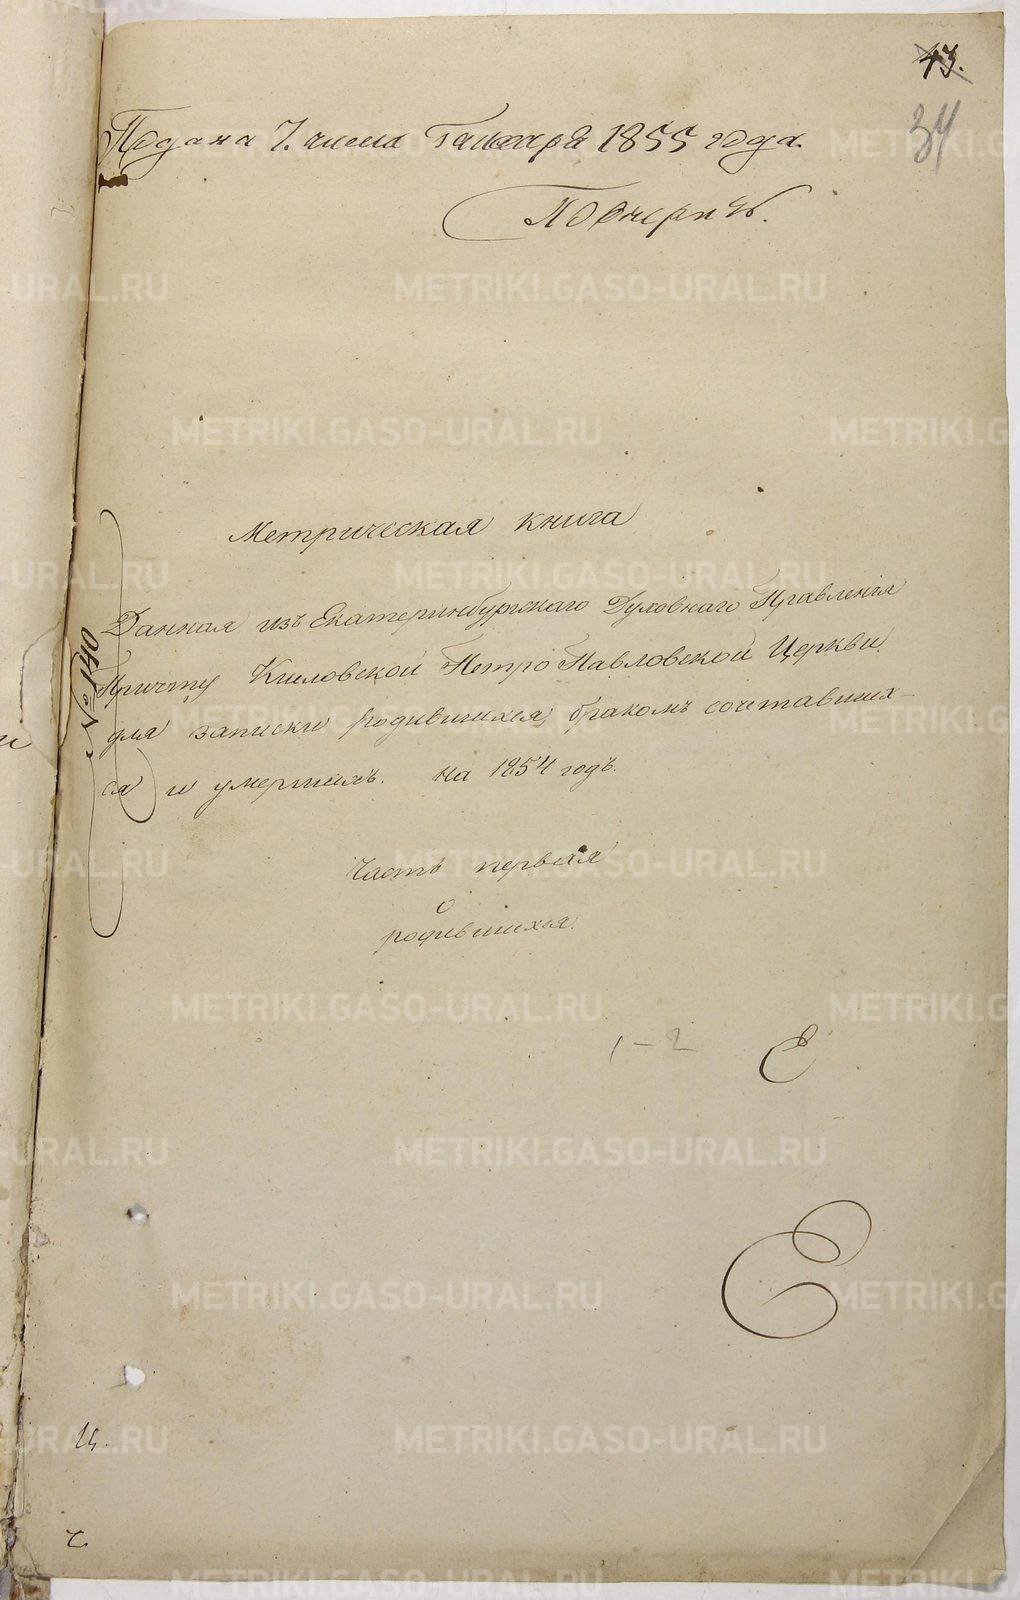 43.
34
Подана 7. числа Генваря 1855 года.
METRIKI.GASO-URAL.RU
Метрическая книга
Данная изъ Екатеринбургскаго Духовнаго Правленія
Причту Кисловской Петро Павловской Церкви
для записки родившихся, бракомъ сочетавших-
ся и умершихъ. на 1854 годъ.
№ 140
Часть первая
о
родившихся.
1-2
Е
Е